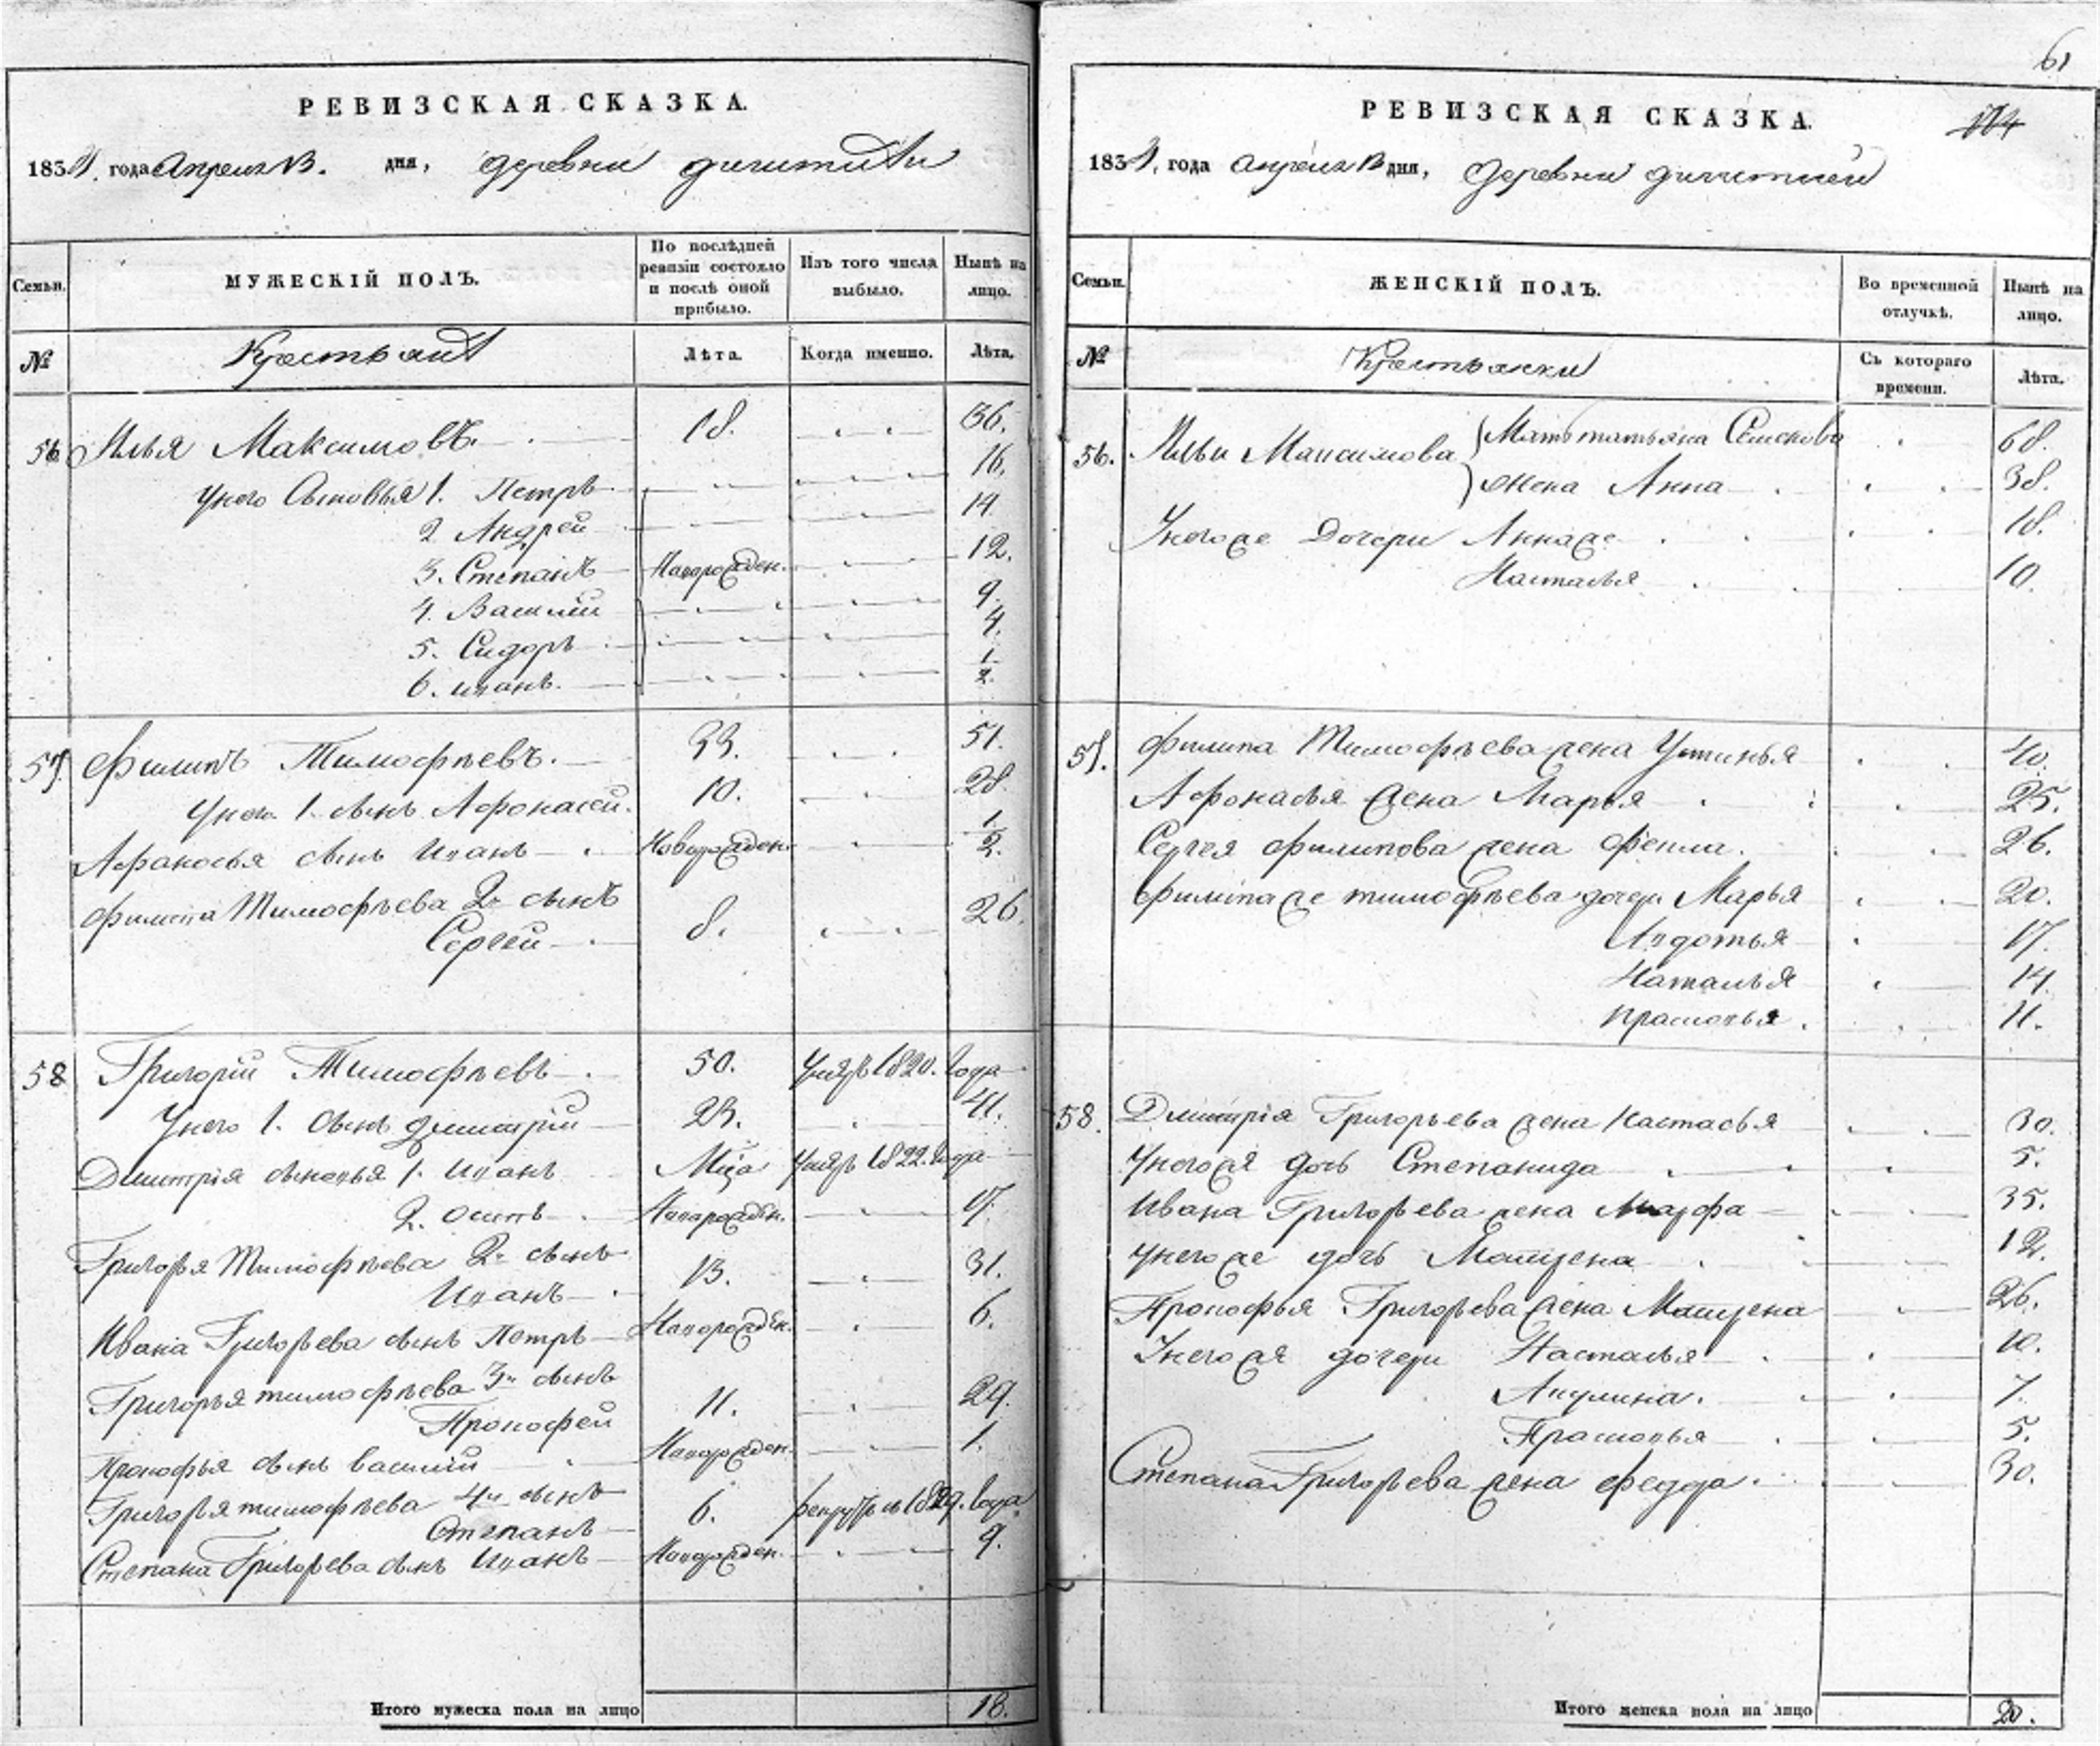 РЕВИЗСКАЯ СКАЗКА.
1834. года Апреля 13. дня, деревни
Семьи.
МУЖЕСКІЙ ПОЛЪ.
По послѣдней ревизіи состояло и послѣ оной прибыло.
Изъ того числа выбыло.
Нынѣ на лицо.
№
Крестьянъ
Лѣта.
Когда именно.
Лѣта.
56 Илья Максимовъ. 18. 36.
Унего Сыновья 1. Петръ 16.
2 Андрей 14
3. Степанъ Новорожден. 12.
4. Василий 9.
5. Сидоръ 4.
6. иванъ. 1/2.
57. Филипъ Тимофѣевъ. 33. 51.
Унего 1. сынъ Афонасей. 10. 28
Афаносья сынъ Иванъ Новорожден. 1/2.
Филипа Тимофѣева 2й сынъ
Сергей 8. 26.
58 Григорий Тимофѣевъ 50. Умръ 1820. года
Унего 1. сынъ Димитрий 23. 41.
Дмитрія сыновья 1. Иванъ Умръ 1822. года
2. осипъ Новорожден. 17.
Григорья Тимофѣева 2й сынъ
Иванъ 13. 31.
Ивана Григорьева сынъ Петръ Новорожден. 6.
Григорья тимофѣева 3й сынъ
Прокофей 11. 29.
Прокофья сынъ василий Новорожден. 1.
Григорья тимофѣева 4й сынъ
Степанъ 6. 1829. года
Степана Григорьева сынъ Иванъ Новорожден. 9.
Итого мужеска пола на лицо 18.
61
РЕВИЗСКАЯ СКАЗКА.
1834. года апреля 13 дня, деревни
Семьи.
ЖЕНСКІЙ ПОЛЪ.
Во временной отлучкѣ.
Нынѣ на лицо.
№
Крестьянки
Съ котораго времени.
Лѣта.
56. Ильи Максимова Мать татьяна 68.
Жена Анна 38.
Унегоже Дочери Аннаже 18.
Настасья 10.
57. Филипа Тимофѣева жена Устинья 40.
Афонасья жена Марья 25.
Сергея Филипова жена Фекла. 26.
Филипаже тимофѣева дочери Марья 20.
Авдотья 17.
Наталья 14.
Прасковья. 11.
58. Дмитрія Григорьева жена Настасья 30.
Унегожя дочь Степанида 5.
Ивана Григорьева жена Марфа 35.
Унегоже дочь Матрена 12.
Прокофья Григорьева жена Матрена 26.
Унегожя дочери Настасья 10.
Акулина. 7.
Прасковья 5.
Степана Григорьева жена федора. 30.
Итого женска пола на лицо 20.